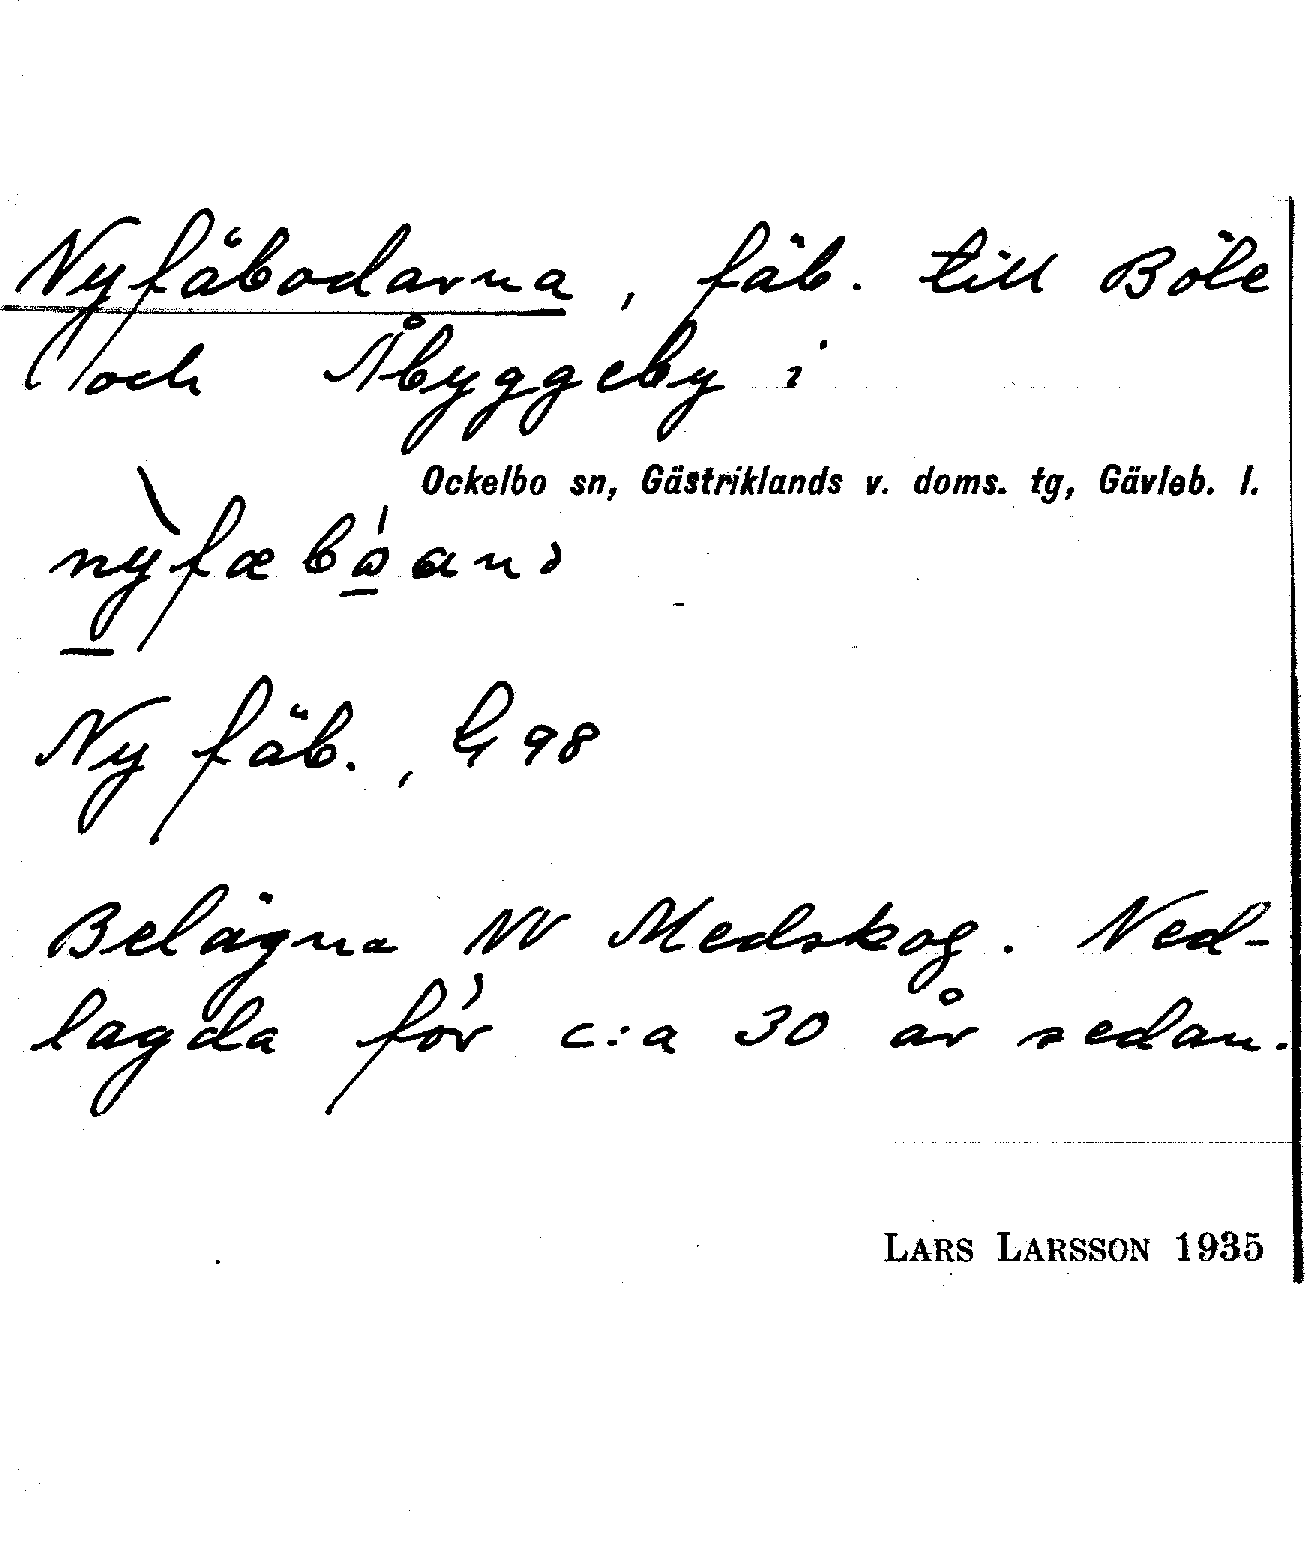 Nyfäbodarna, fäb. till Böle
och Åbyggeby i
Ockelbo sn, Gästriklands v. doms. tg, Gävleb. l.
Ny fäb., G 98
Belägna NV Medskog. Ned-
lagda för c:a 30 år sedan.
LARS LARSSON 1935